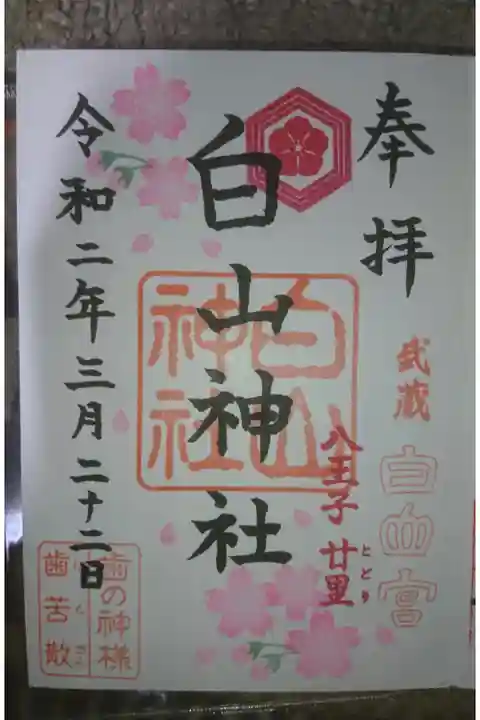 奉拝
武蔵
白山宮
八王子 廿里
ととり
白山神社
白山
神社
令和二年三月二十二日
歯の神様
歯苦散